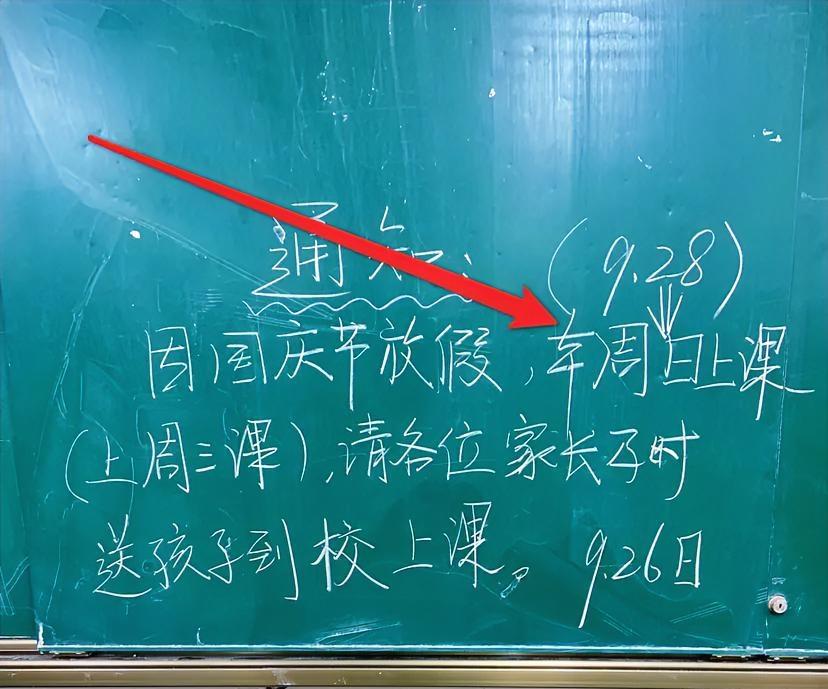 通知:
(9.28)
因国庆节放假,车周日上课
(上周三课),请各位家长及时
送孩子到校上课。 9.26日